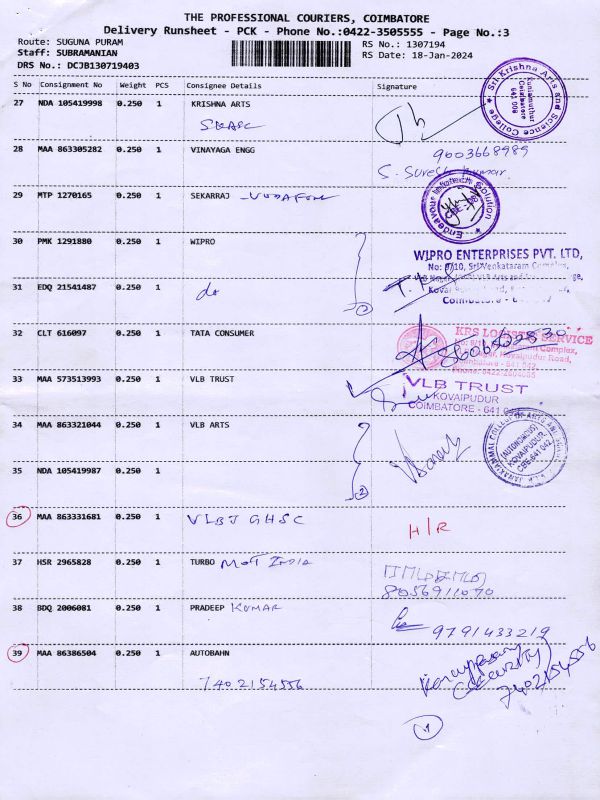 THE PROFESSIONAL COURIERS, COIMBATORE
Delivery Runsheet - PCK - Phone No.:0422-3505555 - Page No.:3
Route: SUGUNA PURAM
Staff: SUBRAMANIAN
DRS No.: DCJB130719403
RS No.: 1307194
RS Date: 18-Jan-2024
S No Consignment No Weight PCS Consignee Details Signature
27 NDA 105419998 0.250 1 KRISHNA ARTS
SKASC
Sri Krishna Arts and Science College
Kuniamuthur
Coimbatore
641 008
28 MAA 863305282 0.250 1 VINAYAGA ENGG
9003668989
S. Suresh Kumar.
29 MTP 1270165 0.250 1 SEKARRAJ - VODAFONE
Solution
30 PMK 1291880 0.250 1 WIPRO
2
WIPRO ENTERPRISES PVT. LTD,
No: 9/10, Sri Venkataram Complex,
31 EDQ 21541487 0.250 1 do
Coimbatore
32 CLT 616097 0.250 1 TATA CONSUMER
KRS LOGISTIC SERVICE
Complex,
Kovaipudur Road,
33 MAA 573513993 0.250 1 VLB TRUST
VLB TRUST
KOVAIPUDUR
COIMBATORE - 641 042
34 MAA 863321044 0.250 1 VLB ARTS
2
JANAKIAMMAL COLLEGE OF ARTS AND
(AUTONOMOUS)
KOVAIPUDUR,
CBE-641 042
35 NDA 105419987 0.250 1
36 MAA 863331681 0.250 1 VLBJ GHSC
H/R
37 HSR 2965828 0.250 1 TURBO MOT INDIA
8056911070
38 BDQ 2006081 0.250 1 PRADEEP KUMAR
9791433219
39 MAA 86386504 0.250 1 AUTOBAHN
7402154556
(Security)
7402154556